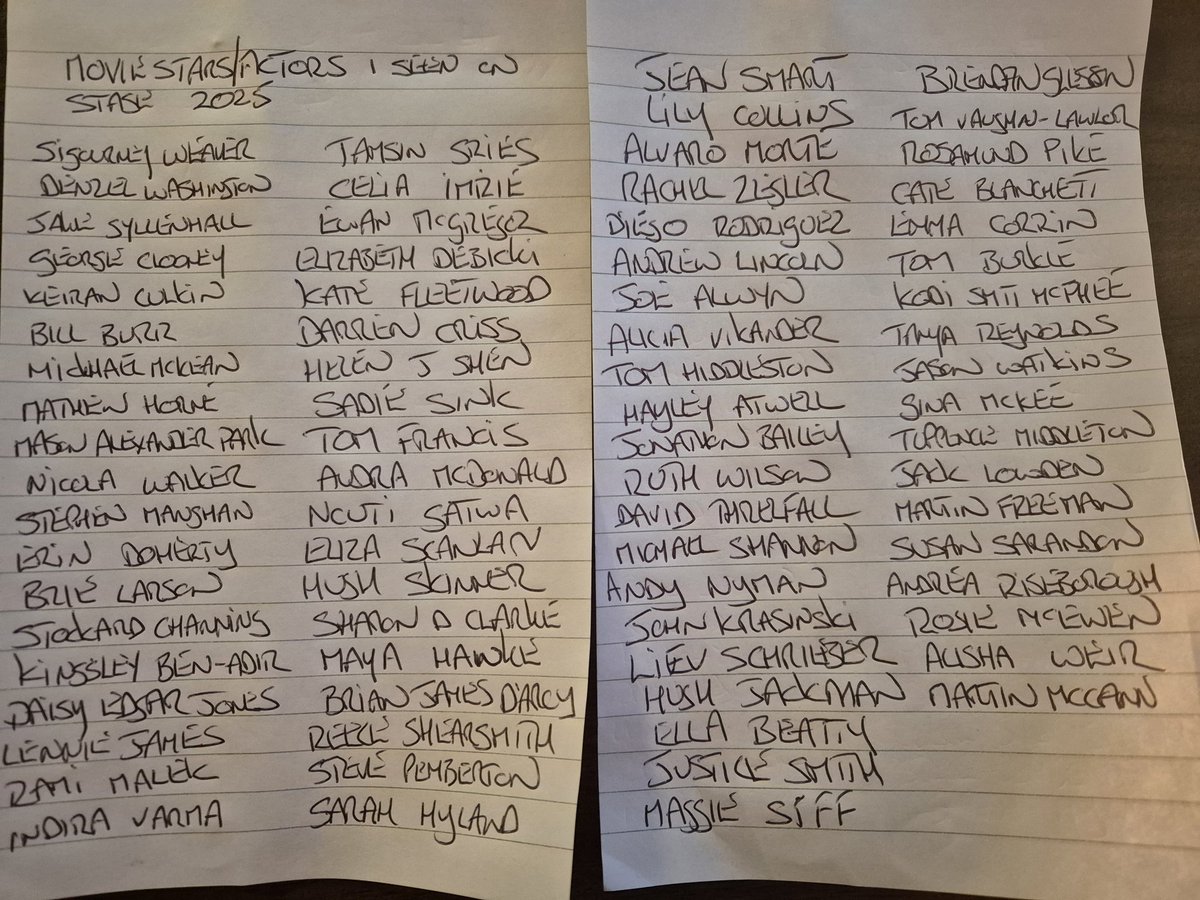 MOVIE STARS/ACTORS I SEEN ON
STAGE 2025
SIGOURNEY WEAVER
DENZEL WASHINGTON
JAKE GYLLENHALL
GEORGE CLOONEY
KEIRAN CULKIN
BILL BURR
MICHAEL MCKEAN
MATHEW HORNE
MASON ALEXANDER PARK
NICOLA WALKER
STEPHEN MANGHAN
ERIN DOHERTY
BRIE LARSON
STOCKARD CHANNING
KINGSLEY BEN-ADIR
DAISY EDGAR JONES
LENNIE JAMES
RAMI MALEK
INDIRA VARMA
TAMSIN GRIEG
CELIA IMRIE
EWAN MCGREGOR
ELIZABETH DEBICKI
KATE FLEETWOOD
DARREN CRISS
HELEN J SHEN
SADIE SINK
TOM FRANCIS
AUDRA MCDONALD
NCUTI GATWA
ELIZA SCANLAN
HUGH SKINNER
SHARON D CLARKE
MAYA HAWKE
BRIAN JAMES D'ARCY
REECE SHEARSMITH
STEVE PEMBERTON
SARAH HYLAND
JEAN SMART
LILY COLLINS
ALVARO MORTE
RACHEL ZEGLER
DIEGO RODRIGUEZ
ANDREW LINCOLN
JOE ALWYN
ALICIA VIKANDER
TOM HIDDLESTON
HAYLEY ATWELL
JONATHON BAILEY
RUTH WILSON
DAVID THRELFALL
MICHAEL SHANNON
ANDY NYMAN
JOHN KRASINSKI
LIEV SCHRIEBER
HUGH JACKMAN
ELLA BEATTY
JUSTICE SMITH
MAGGIE SIFF
BRENDAN GLEESON
TOM VAUGHN-LAWLOR
ROSAMUND PIKE
CATE BLANCHETT
EMMA CORRIN
TOM BURKE
KODI SMIT MCPHEE
TANYA REYNOLDS
JASON WATKINS
GINA MCKEE
TUPPENCE MIDDLETON
JACK LOWDEN
MARTIN FREEMAN
SUSAN SARANDON
ANDREA RISEBOROUGH
ROSIE MCEWEN
ALISHA WEIR
MARTIN MCCANN